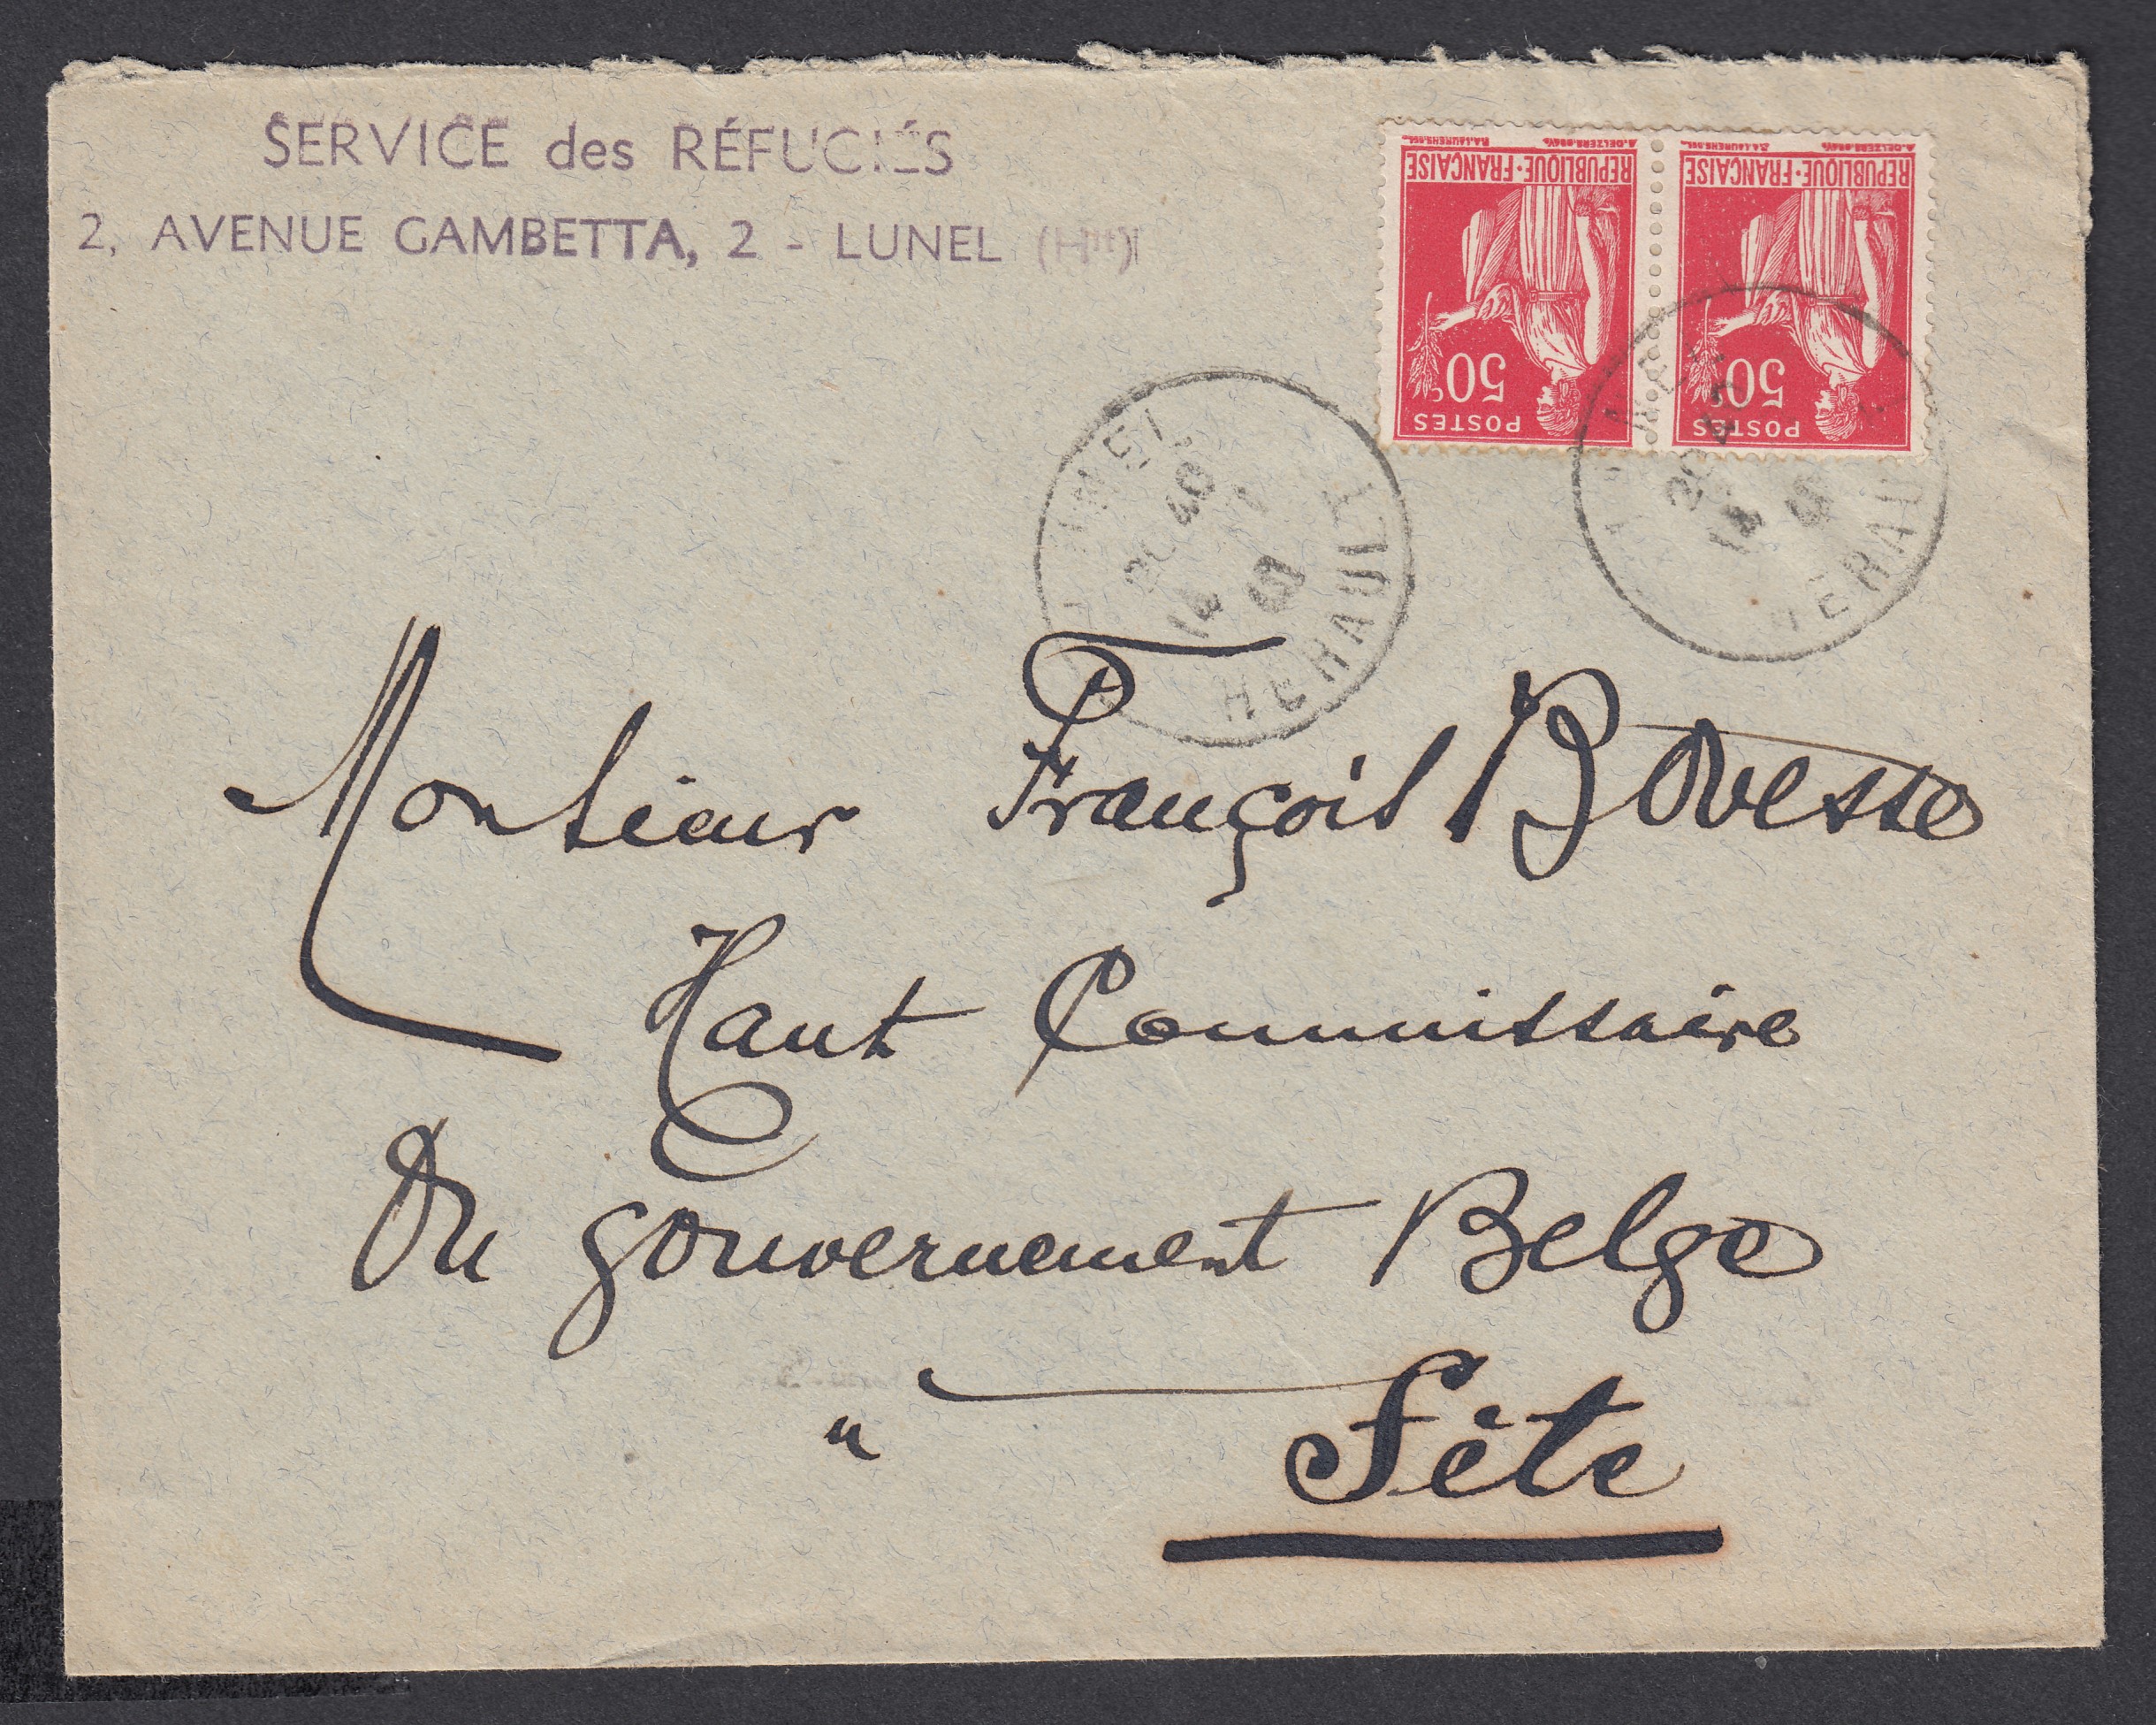 SERVICE des RÉFUGIÉS
2, AVENUE GAMBETTA, 2 - LUNEL (Hlt)
RÉPUBLIQUE·FRANÇAISE
50c
POSTES
RÉPUBLIQUE·FRANÇAISE
50c
POSTES
20 40
14
HERAULT
20
14
HERAU
Monsieur François Bovesse
Haut Commissaire
Du gouvernement Belge
"
Sète